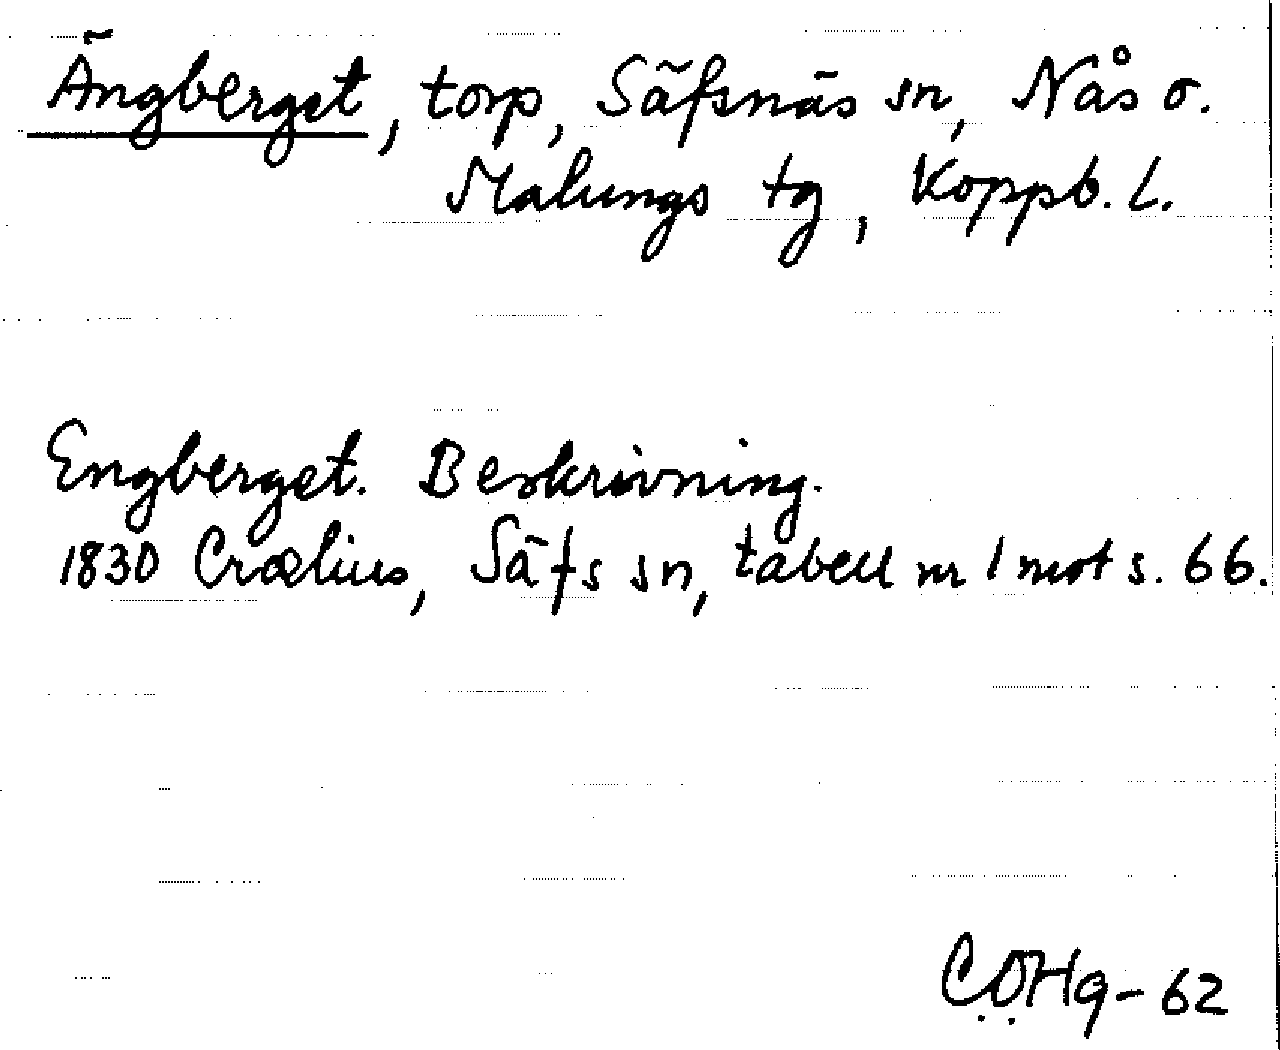 Ängberget, torp, Säfsnäs sn, Nås o.
Malungs tg, Koppb. l.
Engberget. Beskrivning.
1830 Crælius, Säfs sn, tabell nr 1 mot s. 66.
CÖHg - 62